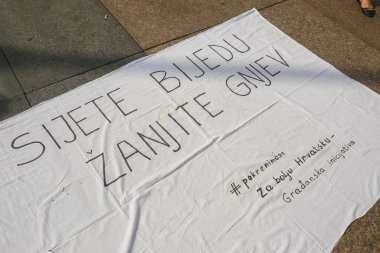 SIJETE BIJEDU
ŽANJITE GNJEV
#pokrenimose
Za bolju Hrvatsku -
Građanska inicijativa